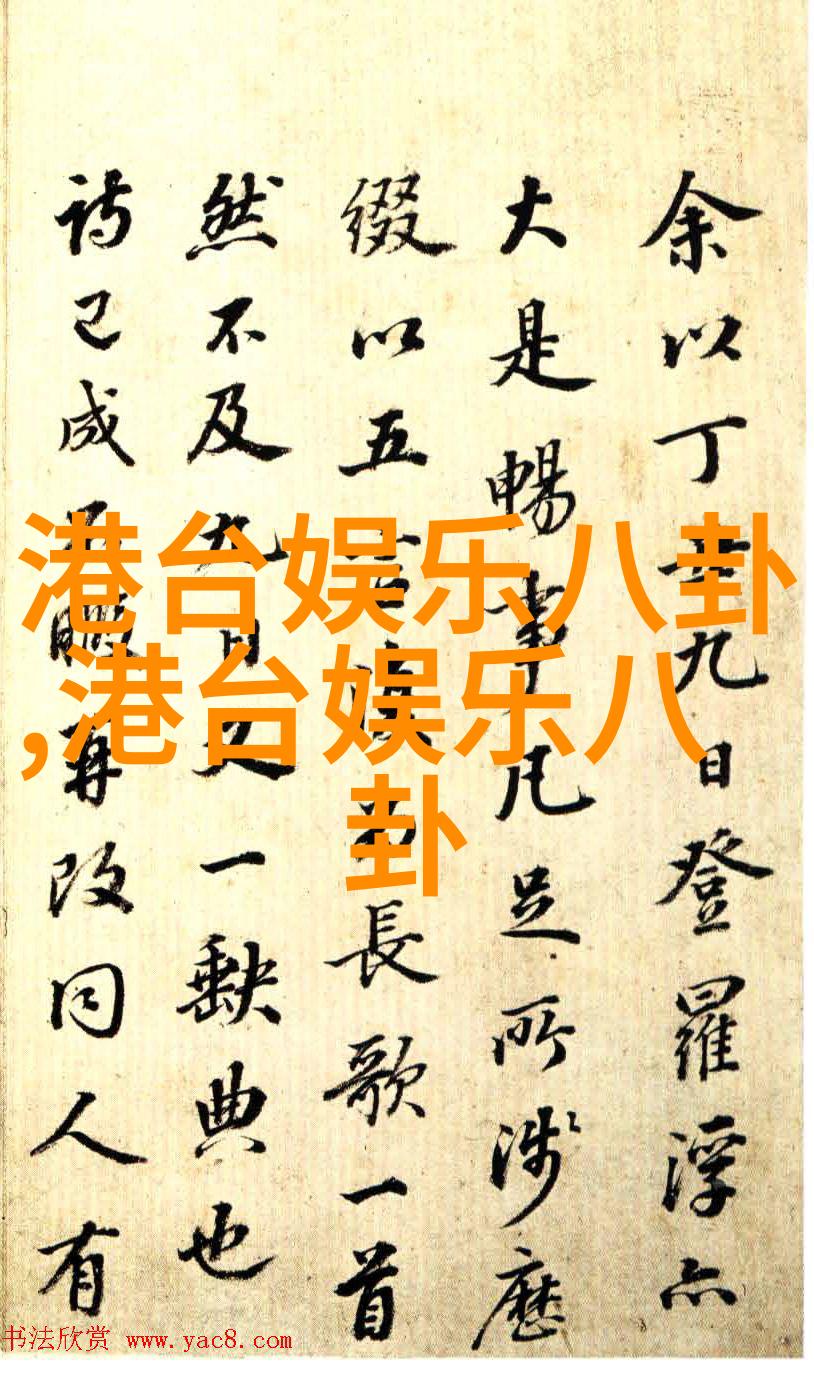 港台娱乐八卦
,港台娱乐八
卦
余以丁丑九日登羅浮亦
大是暢事凡足所涉歷
綴以五言長歌一首
然不及九日一缺典也
詩已成再改同人有
书法欣赏 www.yac8.com